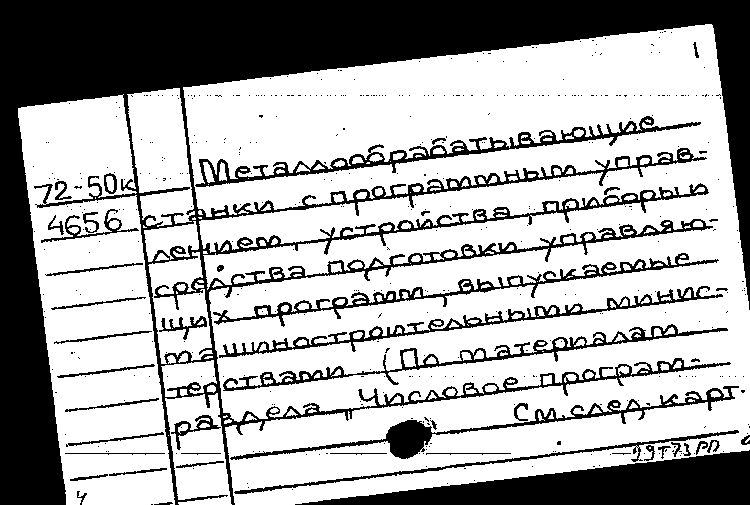 1
Металлообрабатывающие
72-50к
станки с программным управ-
4656
лением, устройства, приборы и
средства подготовки управляю-
щих программ, выпускаемые
машиностроительными минис-
терствами. (По материалам
раздела „Числовое програм-
См. след. карт.
99т73РП
4